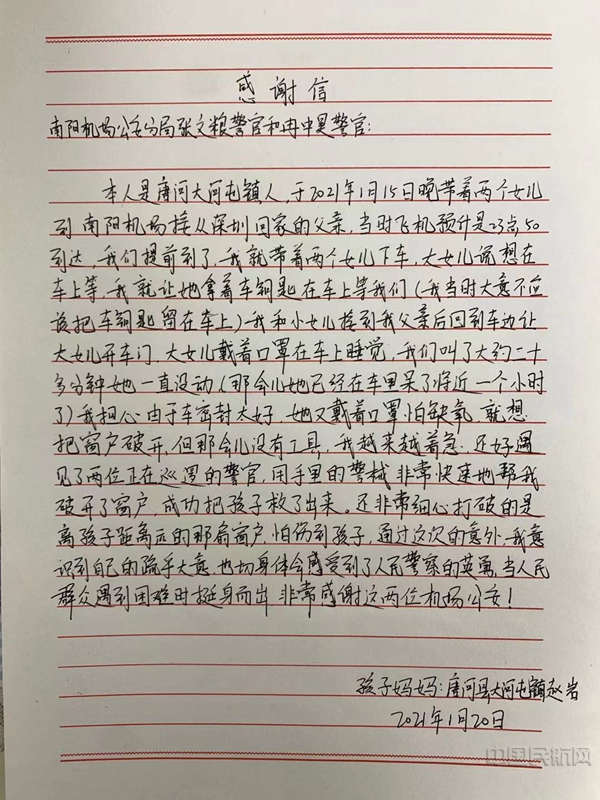 感谢信
南阳机场公安分局张文粮警官和冉中昊警官:
本人是唐河大河屯镇人,于2021年1月15日晚带着两个女儿
到南阳机场接从深圳回家的父亲,当时飞机预计是23点50
到达,我们提前到了,我就带着两个女儿下车,大女儿说想在
车上等,我就让她拿着车钥匙在车上等我们(我当时大意不应
该把车钥匙留在车上)我和小女儿接到我父亲后回到车边让
大女儿开车门,大女儿戴着口罩在车上睡觉,我们叫了大约二十
多分钟她一直没动(那会儿她已经在车里呆了将近一个小时
了)我担心由于车密封太好,她又戴着口罩怕缺氧,就想
把窗户破开,但那会儿没有工具,我越来越着急,还好遇
见了两位正在巡逻的警官,用手里的警械非常快速地帮我
破开了窗户,成功把孩子救了出来。还非常细心打破的是
离孩子距离远的那扇窗户,怕伤到孩子,通过这次的意外,我意
识到自己的疏乎大意,也切身体会感受到了人民警察的英勇,当人民
群众遇到困难时挺身而出,非常感谢这两位机场公安!
孩子妈妈:唐河县大河屯镇赵岩
2021年1月20日
中国民航网